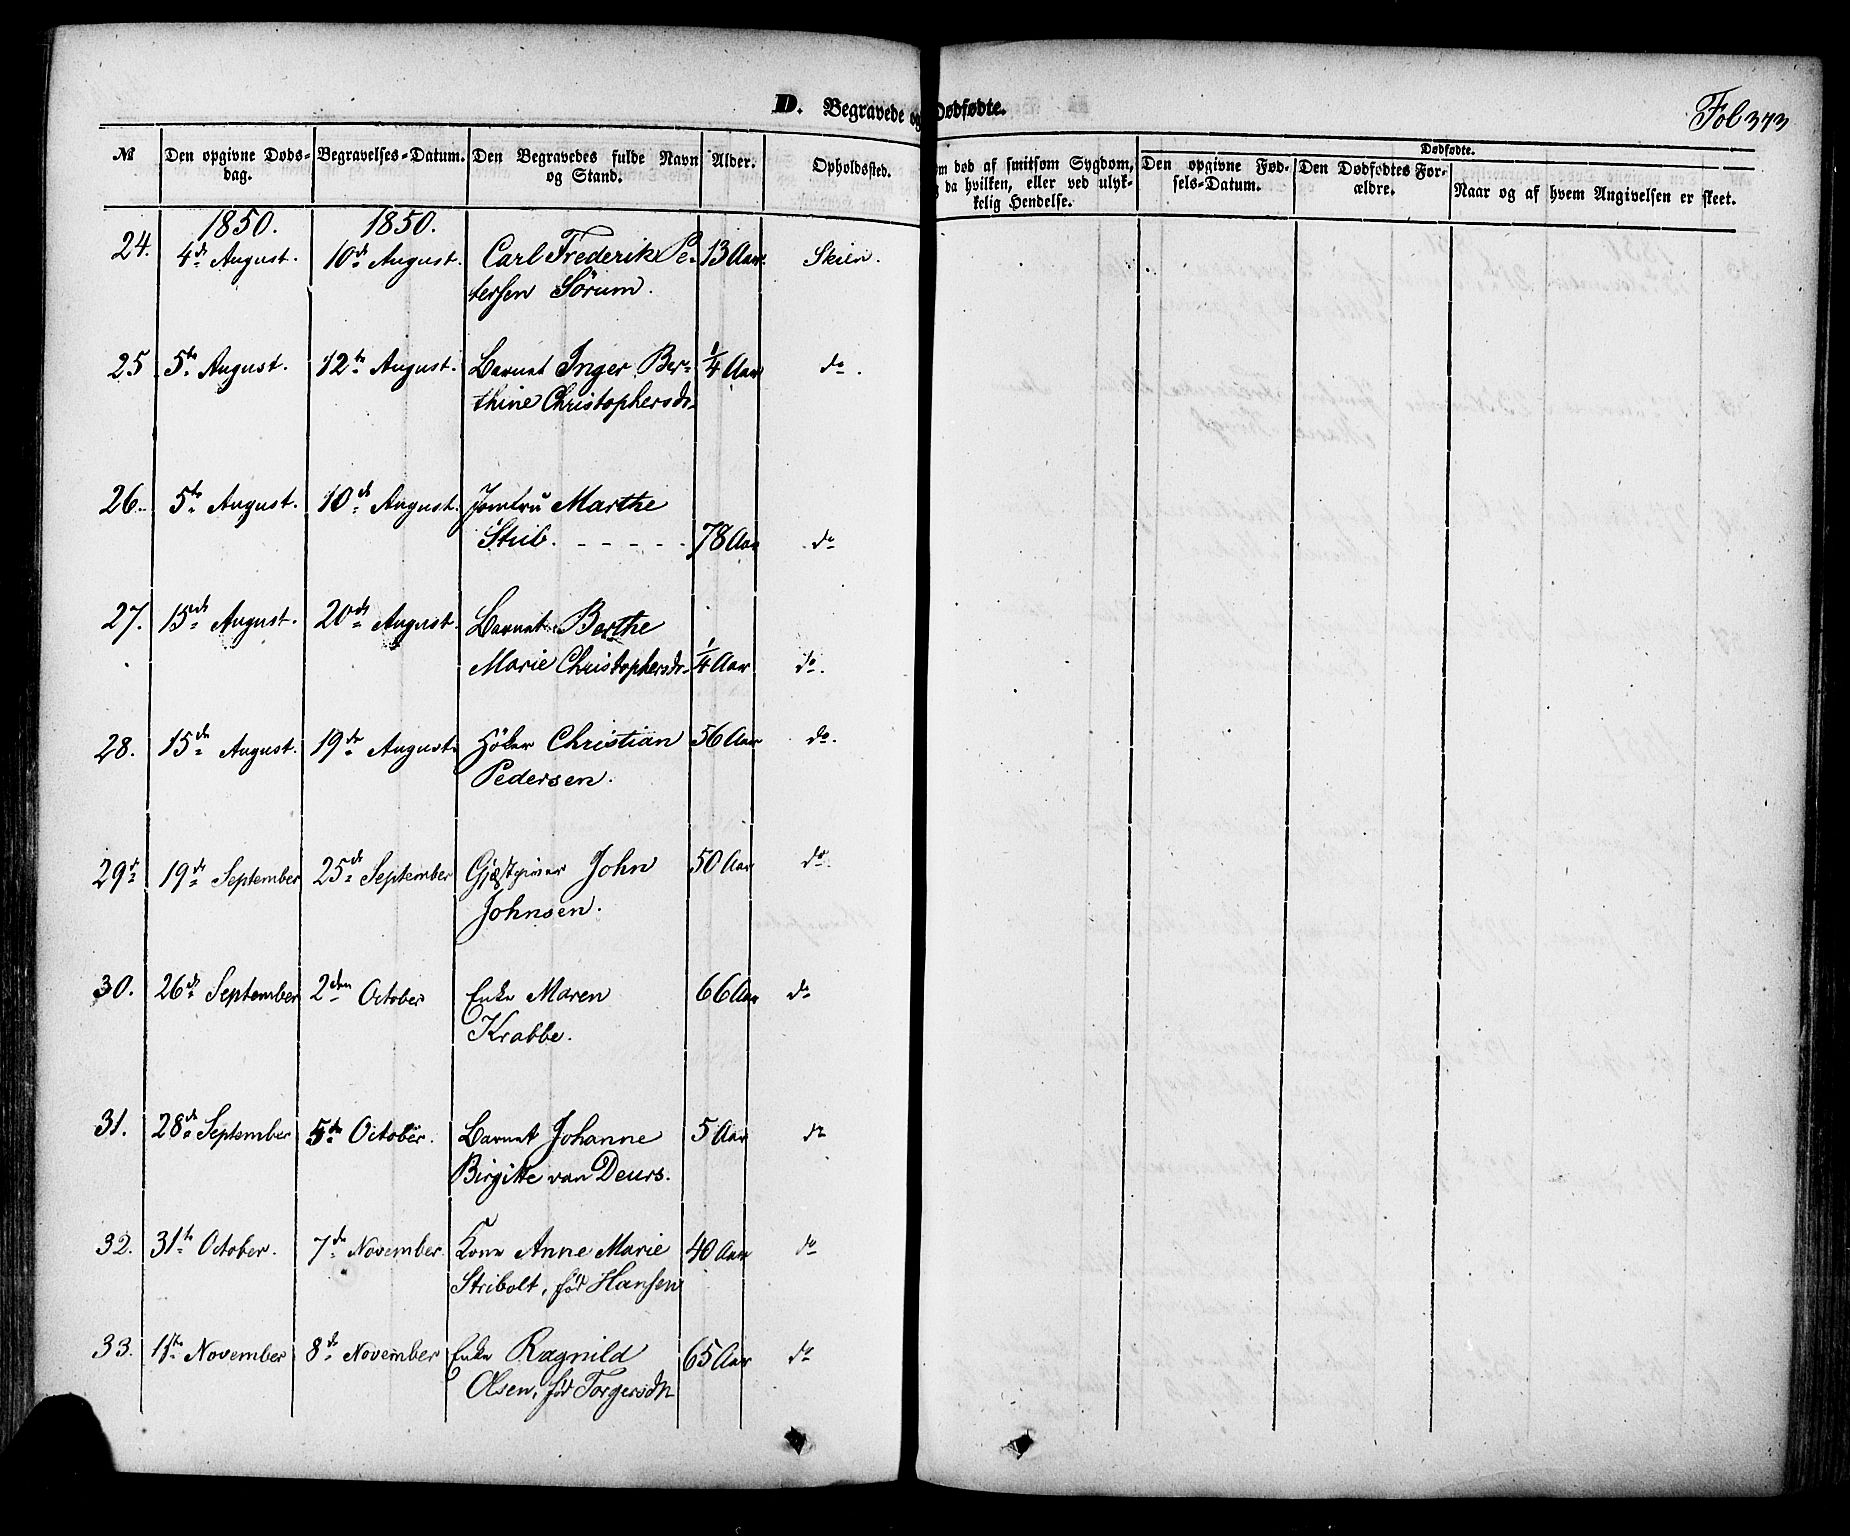 D. Begravede og Dødfødte.
Fol 373
№ Den opgivne Døds-dag. Begravelses-Datum. Den Begravedes fulde Navn og Stand. Alder. Opholdssted. om død af smitsom Sygdom, da hvilken, eller ved ulyk-kelig Hendelse. Dødfødte. Den opgivne Fød-sels-Datum. Den Dødfødtes For-ældre. Naar og af hvem Angivelsen er skeet.
1850. 1850.
24. 4de August. 10de August. Carl Frederik Pe- 13 Aar. Skien.
tersen Sörum.
25 5te August. 12te August. Barnet Inger Ber- 1/4 Aar do.
thine Christophersdr.
26. 5te August. 10de August. Jomfru Marthe
Stub. - - - - - 78 Aar do
27. 15de August. 20de August. Barnet Berthe
Marie Christophersdr. 1/4 Aar do.
28. 15de August. 19de August. Höker Christian 56 Aar do.
Pedersen.
29de 19de September 25de September Gjæstgiver John 50 Aar do.
Johnsen.
30. 26de September 2den October Enke Maren 66 Aar do
Krabbe.
31. 28de September 5te October. Barnet Johanne 5 Aar do
Birgitte van Deurs.
32. 31te October. 7de November. Kone Anne Marie 40 Aar do
Stribolt, fød Hansen
33. 1ste November 8de November Enke Ragnild 65 Aar do
Olsen, fød Torgersdtr